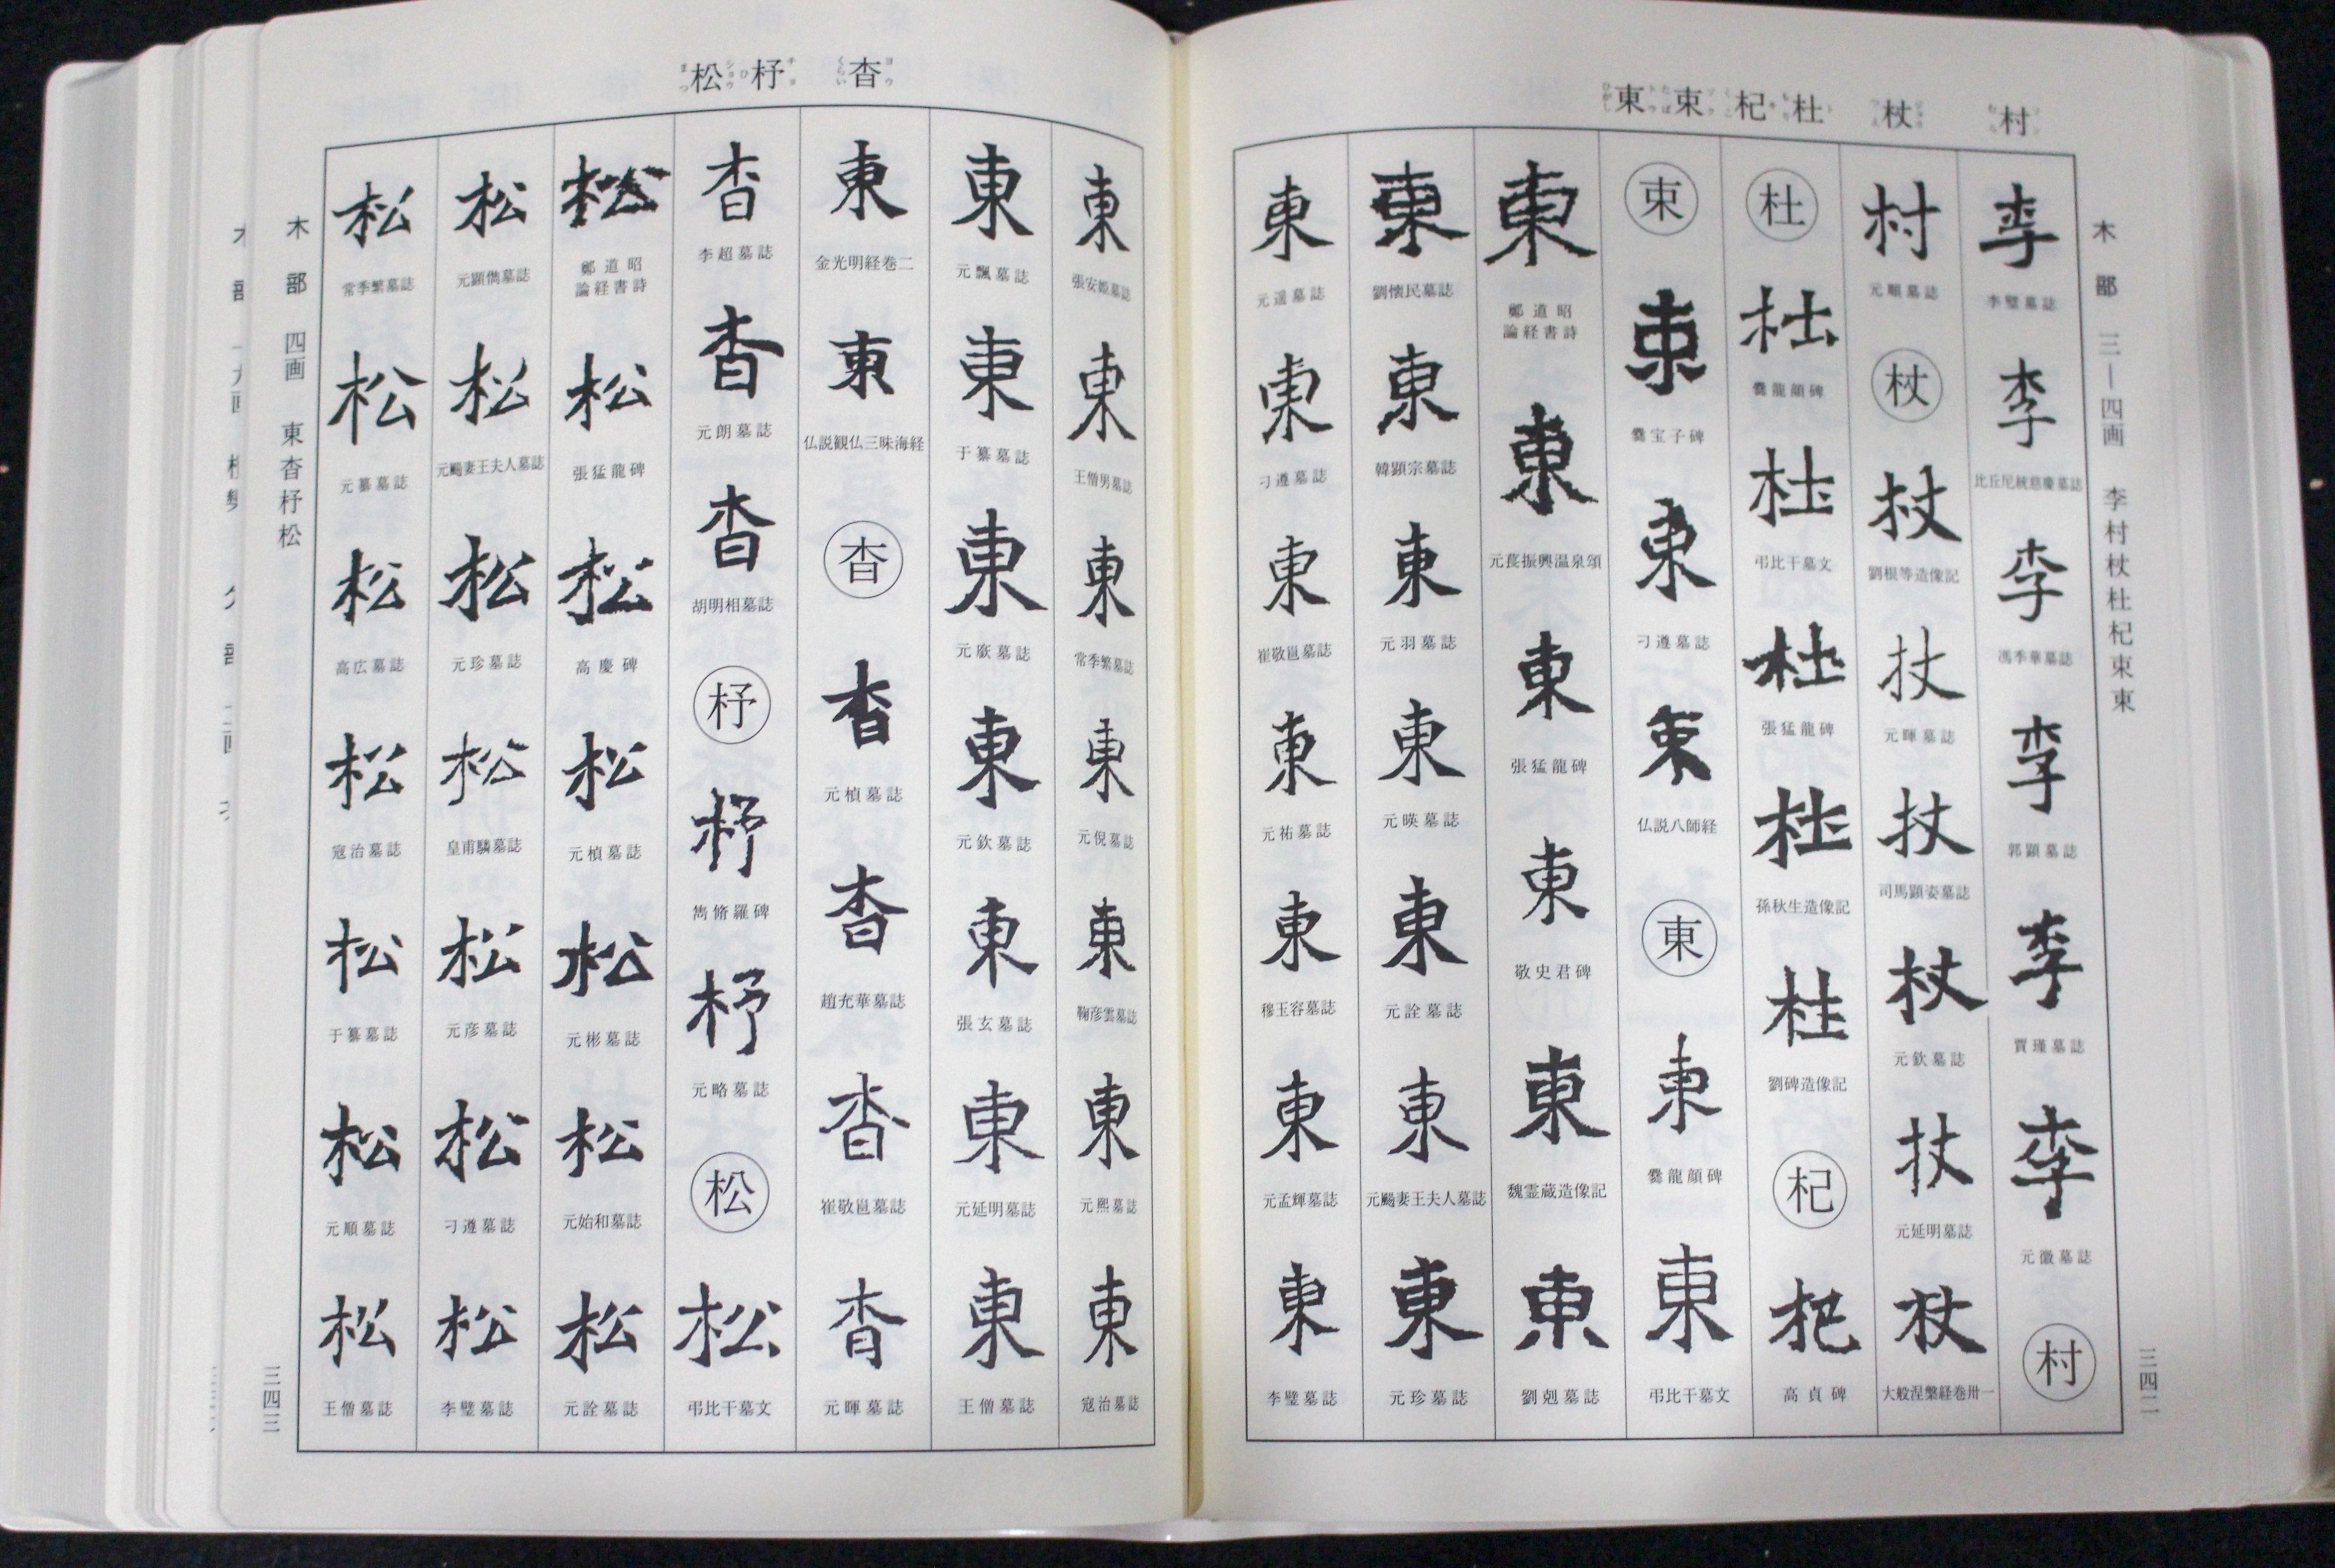 村 杖 杜 杞 束 東
木部 三―四画 李村杖杜杞束東
李
李璧墓誌
李
比丘尼統慈慶墓誌
李
馮季華墓誌
李
郭顕墓誌
李
賈瑾墓誌
李
元徽墓誌
村
村
元順墓誌
杖
杖
劉根等造像記
杖
元暉墓誌
杖
司馬顕姿墓誌
杖
元欽墓誌
杖
元延明墓誌
杖
大般涅槃経巻卅一
杜
杜
爨龍顔碑
杜
弔比干墓文
杜
張猛龍碑
杜
孫秋生造像記
杜
劉碑造像記
杞
杞
高貞碑
束
束
爨宝子碑
束
刁遵墓誌
束
仏説八師経
東
東
爨龍顔碑
東
弔比干墓文
東
鄭道昭
論経書詩
東
元萇振興温泉頌
東
張猛龍碑
東
敬史君碑
東
魏霊蔵造像記
東
劉剋墓誌
東
劉懐民墓誌
東
韓顕宗墓誌
東
元羽墓誌
東
元暎墓誌
東
元詮墓誌
東
元颺妻王夫人墓誌
東
元珍墓誌
東
元遥墓誌
東
刁遵墓誌
東
崔敬邕墓誌
東
元祐墓誌
東
穆玉容墓誌
東
元孟輝墓誌
東
李璧墓誌
三四二
杳 杼 松
東
張安姫墓誌
東
王僧男墓誌
東
常季繁墓誌
東
元倪墓誌
東
鞠彦雲墓誌
東
元熙墓誌
東
寇治墓誌
東
元飄墓誌
東
于纂墓誌
東
元廞墓誌
東
元欽墓誌
東
張玄墓誌
東
元延明墓誌
東
王僧墓誌
東
金光明経巻二
東
仏説観仏三昧海経
杳
杳
元楨墓誌
杳
趙充華墓誌
杳
崔敬邕墓誌
杳
元暉墓誌
杳
李超墓誌
杳
元朗墓誌
杳
胡明相墓誌
杼
杼
雋脩羅碑
杼
元略墓誌
松
松
弔比干墓文
松
鄭道昭
論経書詩
松
張猛龍碑
松
高慶碑
松
元楨墓誌
松
元彬墓誌
松
元始和墓誌
松
元詮墓誌
松
元顕儁墓誌
松
元颺妻王夫人墓誌
松
元珍墓誌
松
皇甫驎墓誌
松
元彦墓誌
松
刁遵墓誌
松
李璧墓誌
松
常季繁墓誌
松
元纂墓誌
松
高広墓誌
松
寇治墓誌
松
于纂墓誌
松
元順墓誌
松
王僧墓誌
木部 四画 東杳杼松
三四三